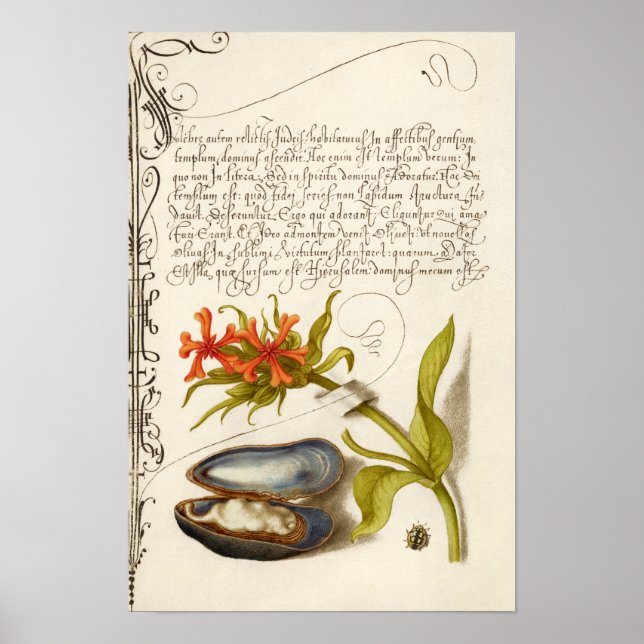 autem relictis Judeis, habitaturus In affectibus gentium,
templum dominus ascendit. Hoc enim est templum verum: In
quo non In litera, Sed in spiritu dominus Adoratur. Hoc Dei
templum est: quod fidej series non lapidum structura fun
davit. Deseruntur Ergo qui adorant: Eliguntur qui ama
turi Erant. Et Ideo ad montem venit Oliueti: vt nouellas
Oliuas In sublimi virtutum plantaret: quarum Mater
Est Illa, quæ sursum est Hierusalem dominus mecum est